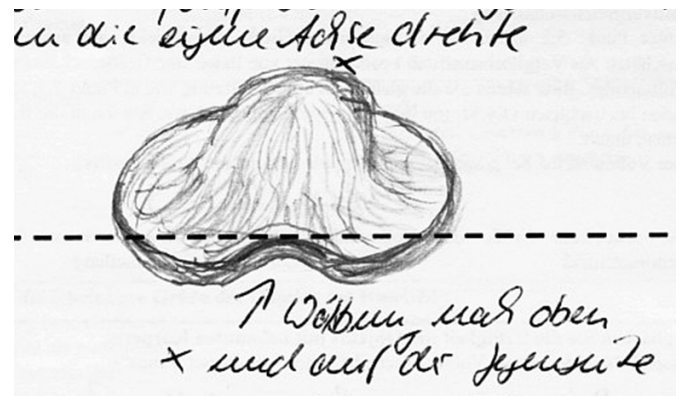 um die eigene Achse drehte
x
↑ Wölbung nach oben
x und auf der Gegenseite